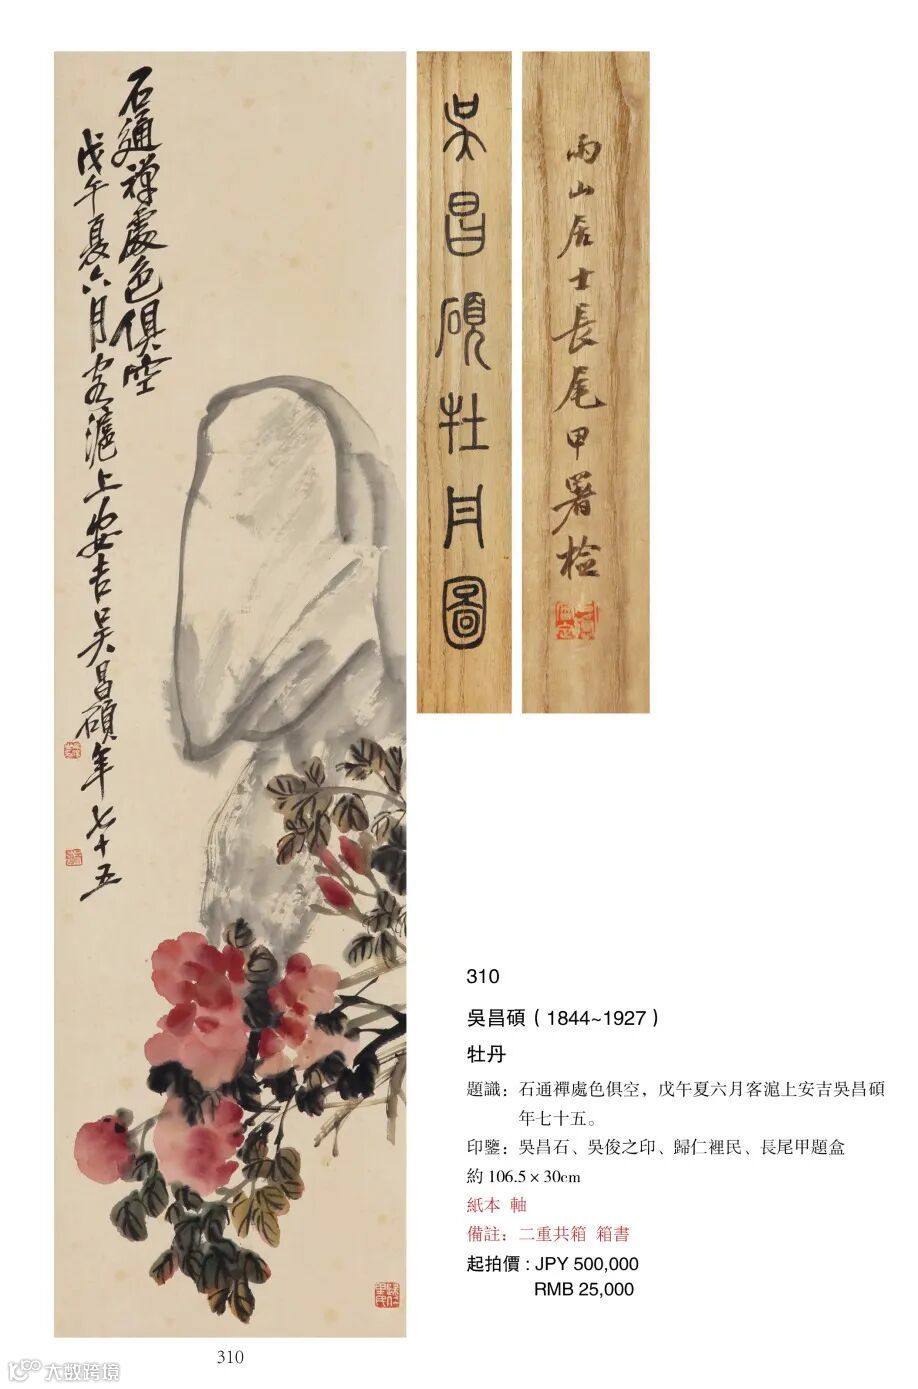 石通禪處色俱空
戊午夏六月客滬上安吉吳昌碩年七十五
吳昌碩牡丹圖
雨山居士長尾甲署檢
310
吳昌碩（1844~1927）
牡丹
題識：石通禪處色俱空，戊午夏六月客滬上安吉吳昌碩
年七十五。
印鑒：吳昌石、吳俊之印、歸仁裡民、長尾甲題盒
約 106.5 × 30cm
紙本 軸
備註：二重共箱 箱書
起拍價：JPY 500,000
RMB 25,000
310
大数跨境